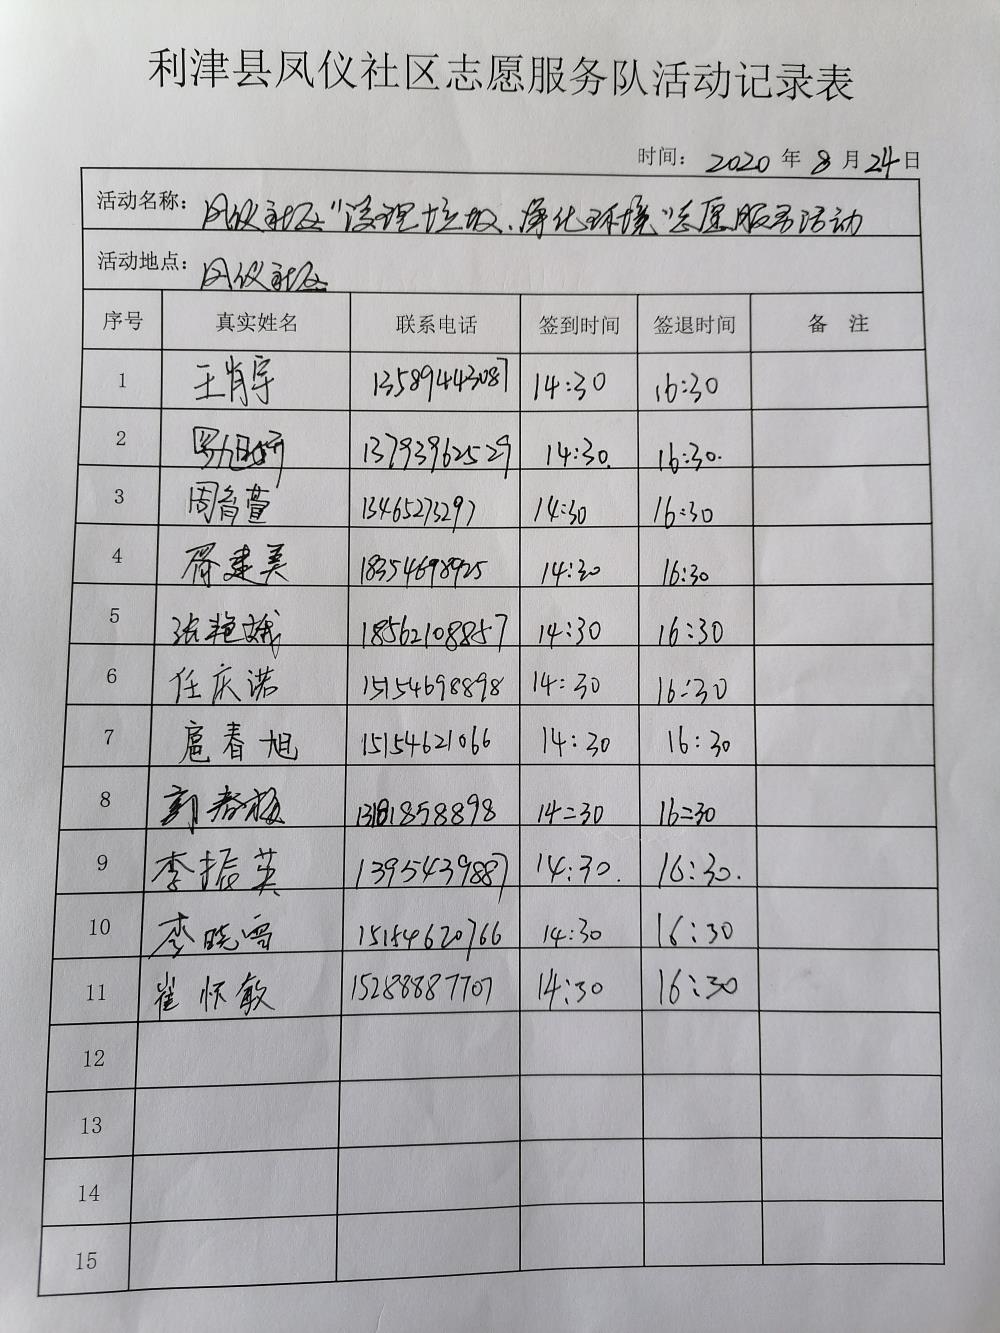 利津县凤仪社区志愿服务队活动记录表
时间： 2020 年 8 月 24 日
活动名称： 凤仪社区“清理垃圾、净化环境”志愿服务活动
活动地点： 凤仪社区
序号 真实姓名 联系电话 签到时间 签退时间 备 注
1 王肖宇 13589443087 14:30 16:30
2 13793962529 14:30. 16:30.
3 周智萱 13465273297 14:30 16:30
4 胥建美 18354698925 14:30 16:30
5 张艳娥 18562108857 14:30 16:30
6 任庆诺 15154698898 14:30 16:30
7 扈春旭 15154621066 14:30 16:30
8 郭春梅 14:30 16:30
9 李振英 1395439887 14:30. 16:30.
10 李晓雪 15154620766 14:30 16:30
11 崔怀敏 15288887707 14:30 16:30
12
13
14
15